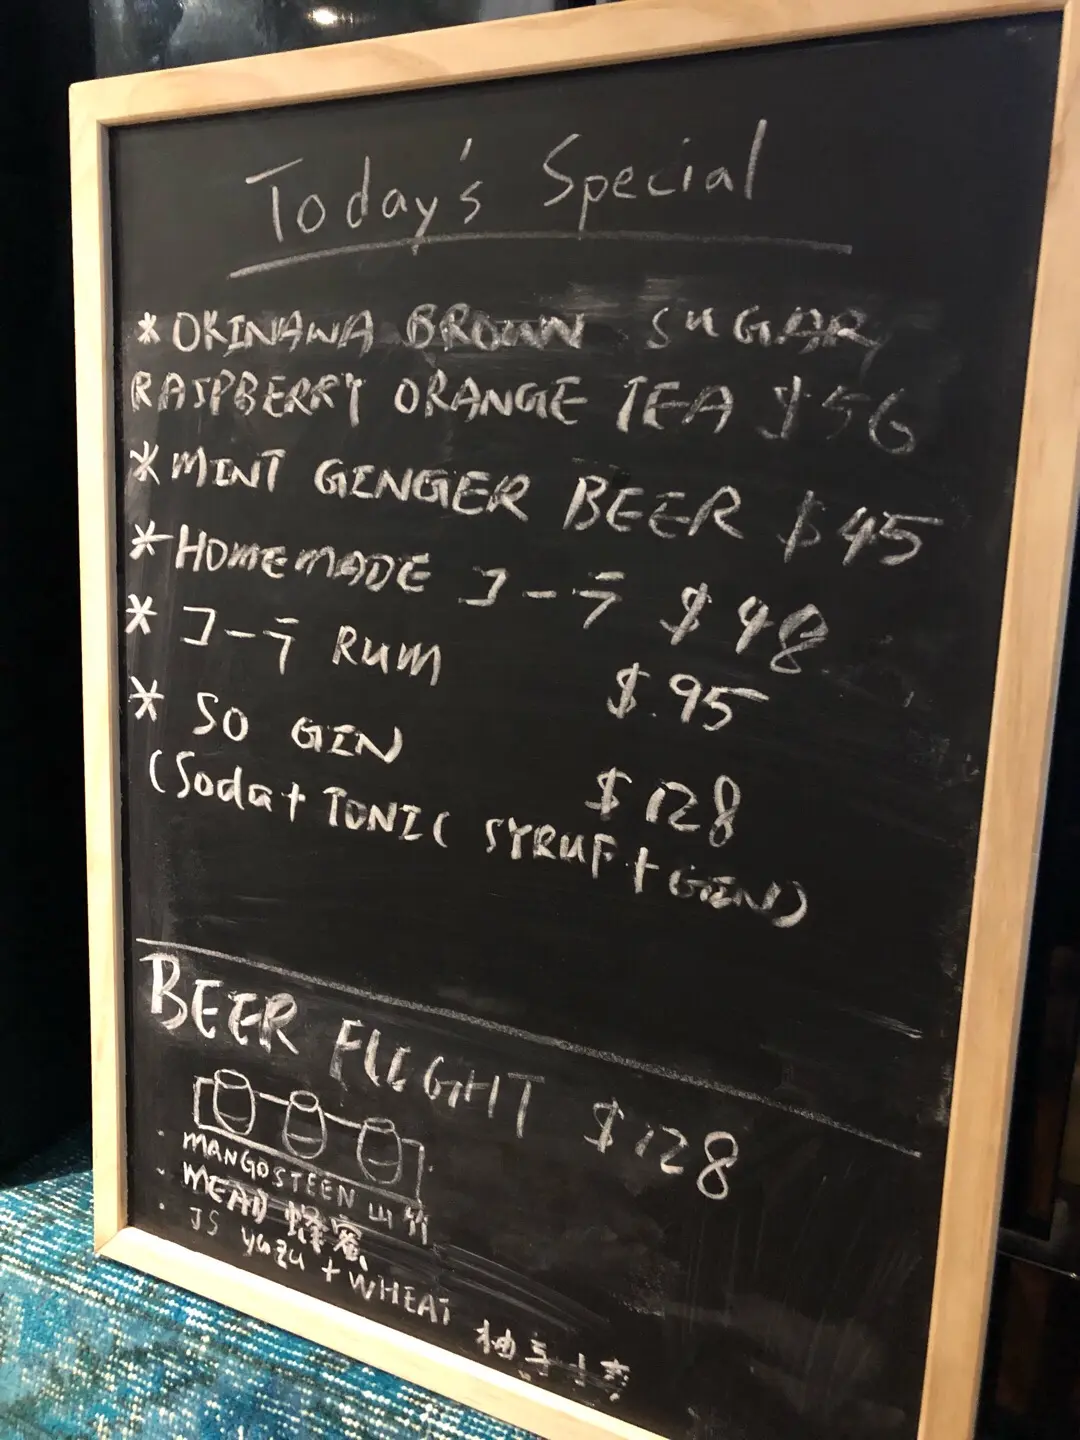 Today's Special
* OKINAWA BROWN SUGAR
RASPBERRY ORANGE TEA $56
* MINT GINGER BEER $45
* HOMEMADE コーラ $48
* コーラ RUM $95
* SO GIN $128
(Soda + TONIC SYRUP + GIN)
BEER FLIGHT $128
· MANGOSTEEN 山竹
· MEAD 蜂蜜
· JS yuzu + WHEAT 柚子小麥